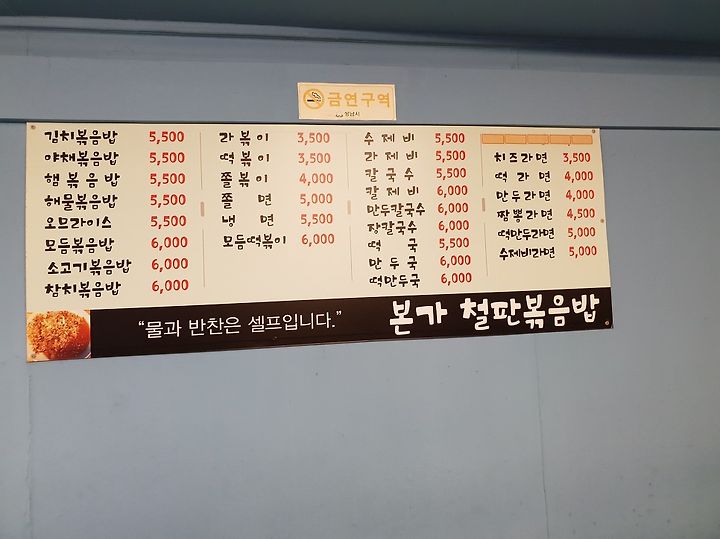 금연구역
성남시
김치볶음밥 5,500
야채볶음밥 5,500
햄볶음밥 5,500
해물볶음밥 5,500
오므라이스 5,500
모듬볶음밥 6,000
소고기볶음밥 6,000
참치볶음밥 6,000
라볶이 3,500
떡볶이 3,500
쫄볶이 4,000
쫄면 5,000
냉면 5,500
모듬떡볶이 6,000
수제비 5,500
라제비 5,500
칼국수 5,500
칼제비 6,000
만두칼국수 6,000
장칼국수 6,000
떡국 5,500
만두국 6,000
떡만두국 6,000
치즈라면 3,500
떡라면 4,000
만두라면 4,000
짬뽕라면 4,500
떡만두라면 5,000
수제비라면 5,000
“물과 반찬은 셀프입니다.”
본가 철판볶음밥